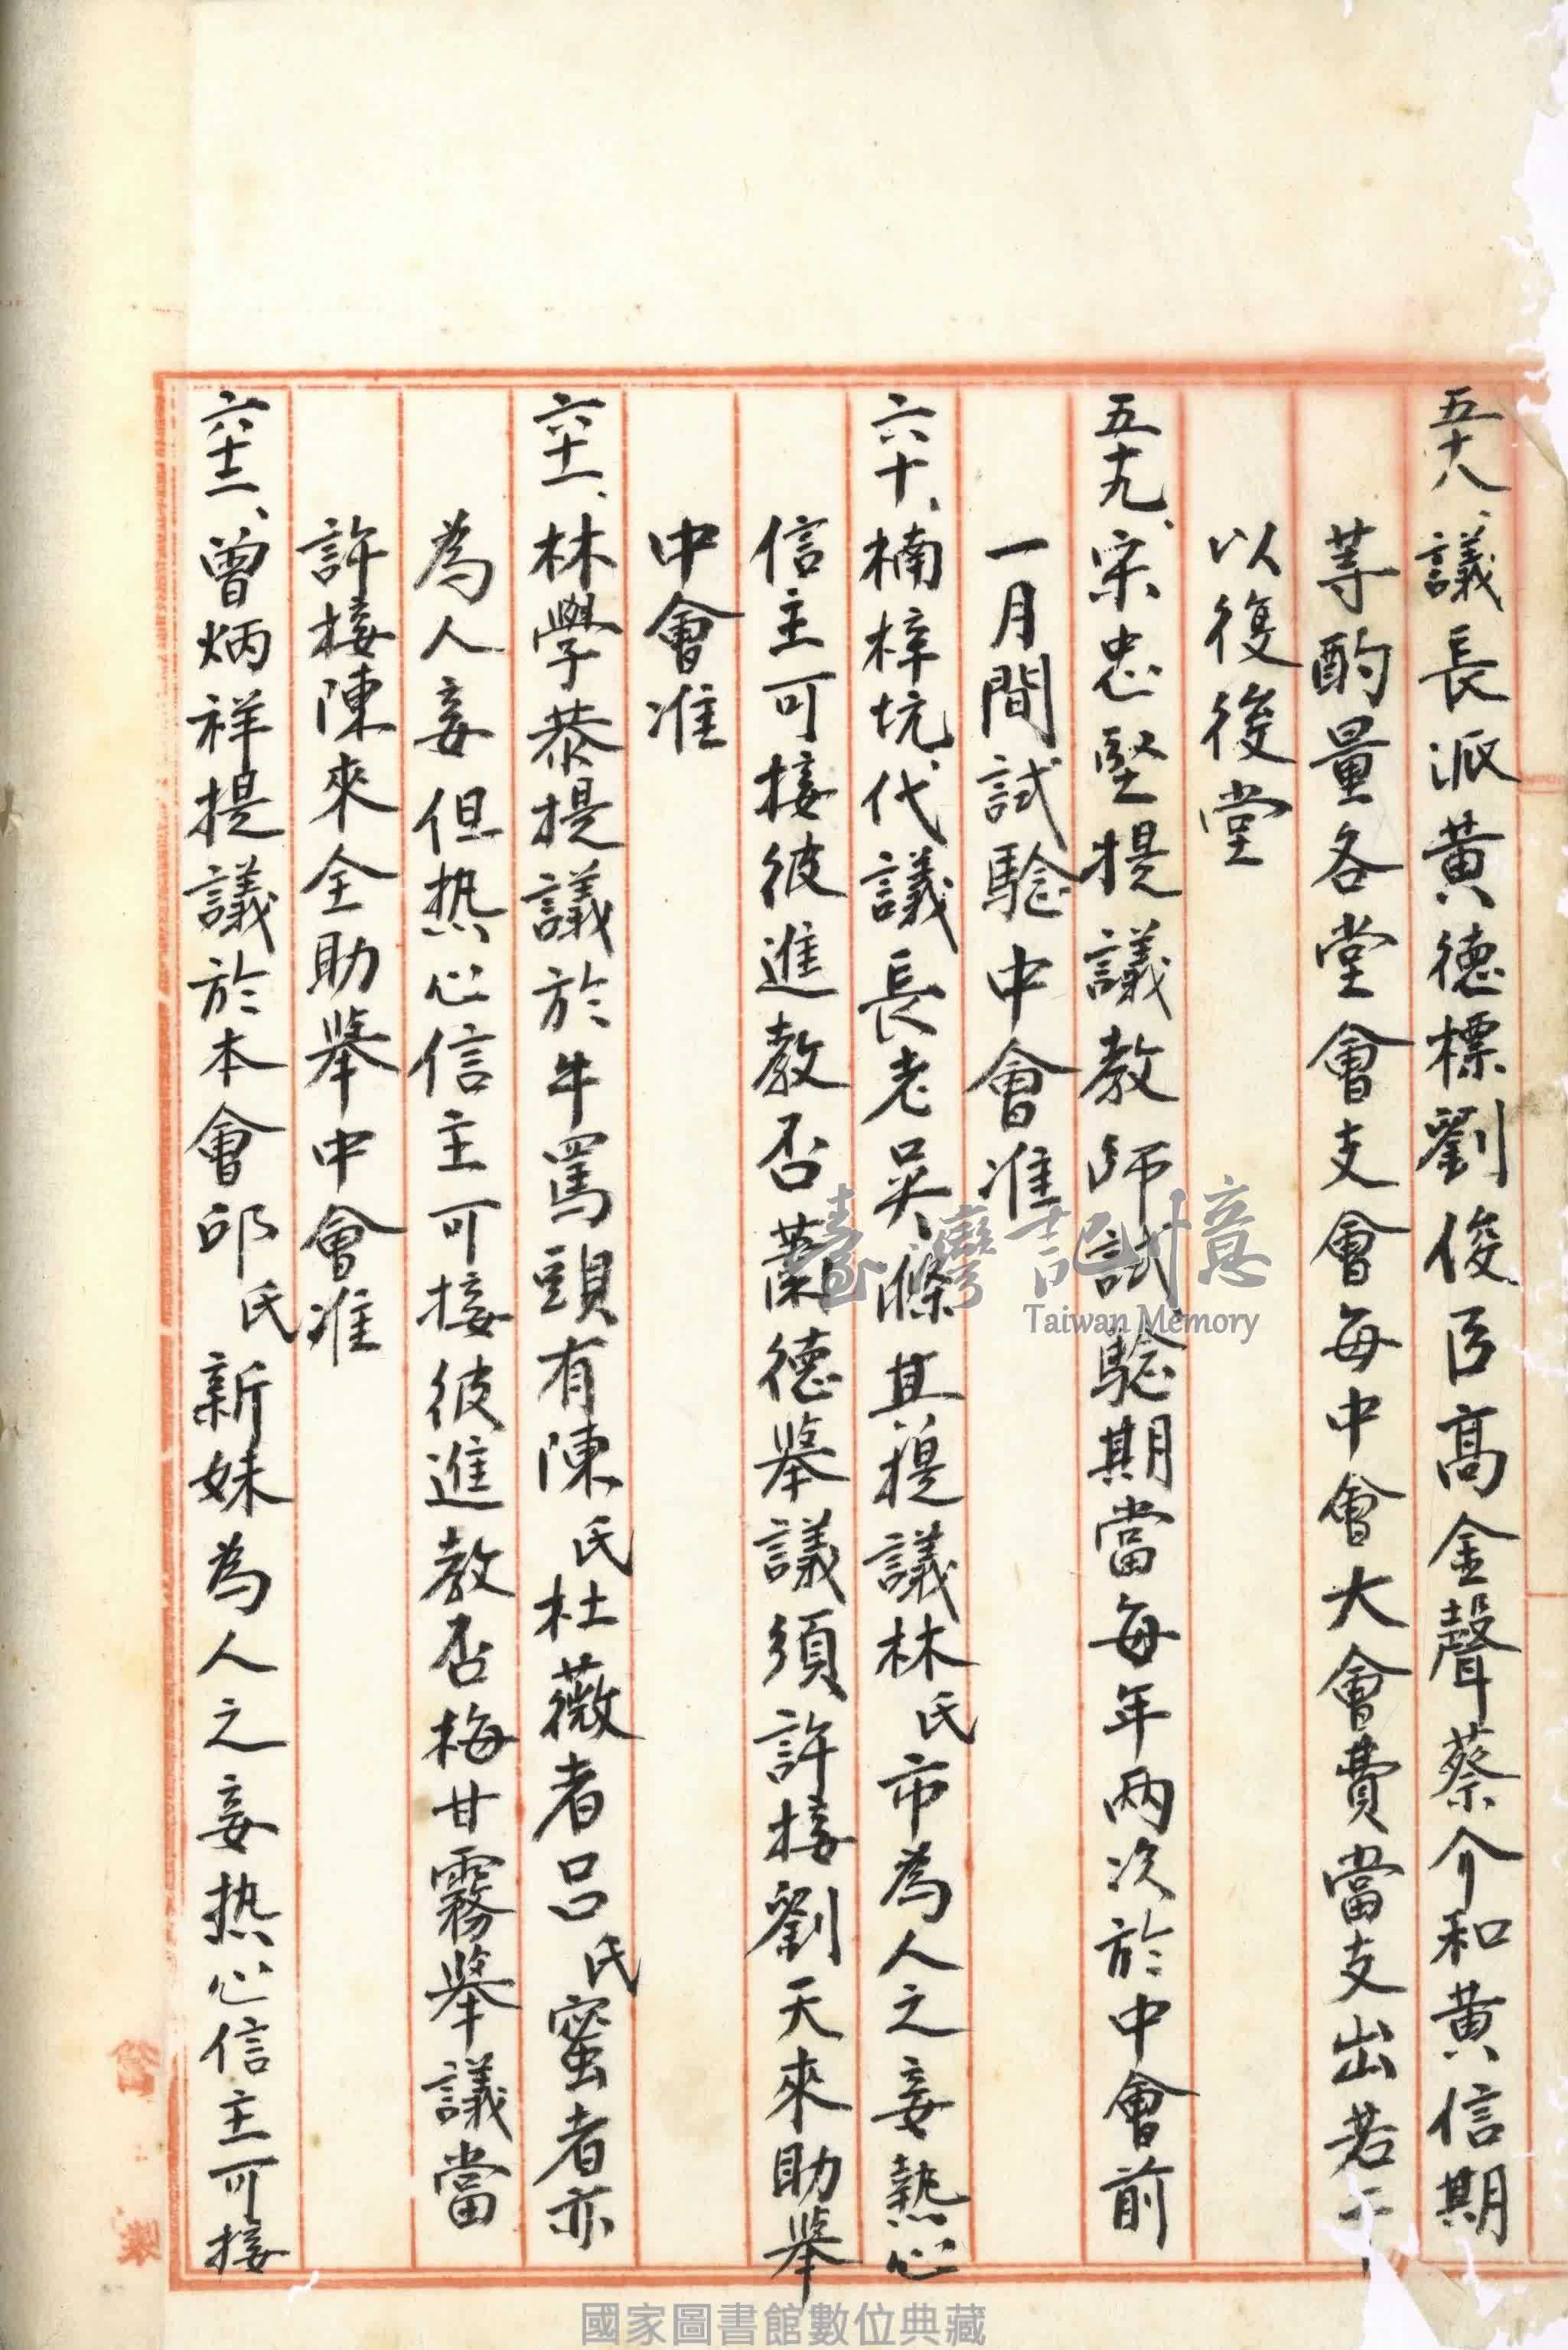 五十八、議長派黃德標劉俊臣高金聲蔡介和黃信期
等酌量各堂會支會每中會大會費當支出若干
以復後堂
五十九、宋忠堅提議教師試驗期當每年兩次於中會前
一月間試驗中會准
六十、楠梓坑、代議長老吳滌其提議林氏市為人之妾熱心
信主可接彼進教否蘭德舉議須許接劉天來助舉
中會准
六十一、林學恭提議於牛罵頭有陳氏杜薇者呂氏蜜者亦
為人妾但热心信主可接彼進教否梅甘霧舉議當
許接陳來全助舉中會准
六十二、曾炳祥提議於本會邱氏新妹為人之妾热心信主可接
臺灣記憶
Taiwan Memory
國家圖書館數位典藏